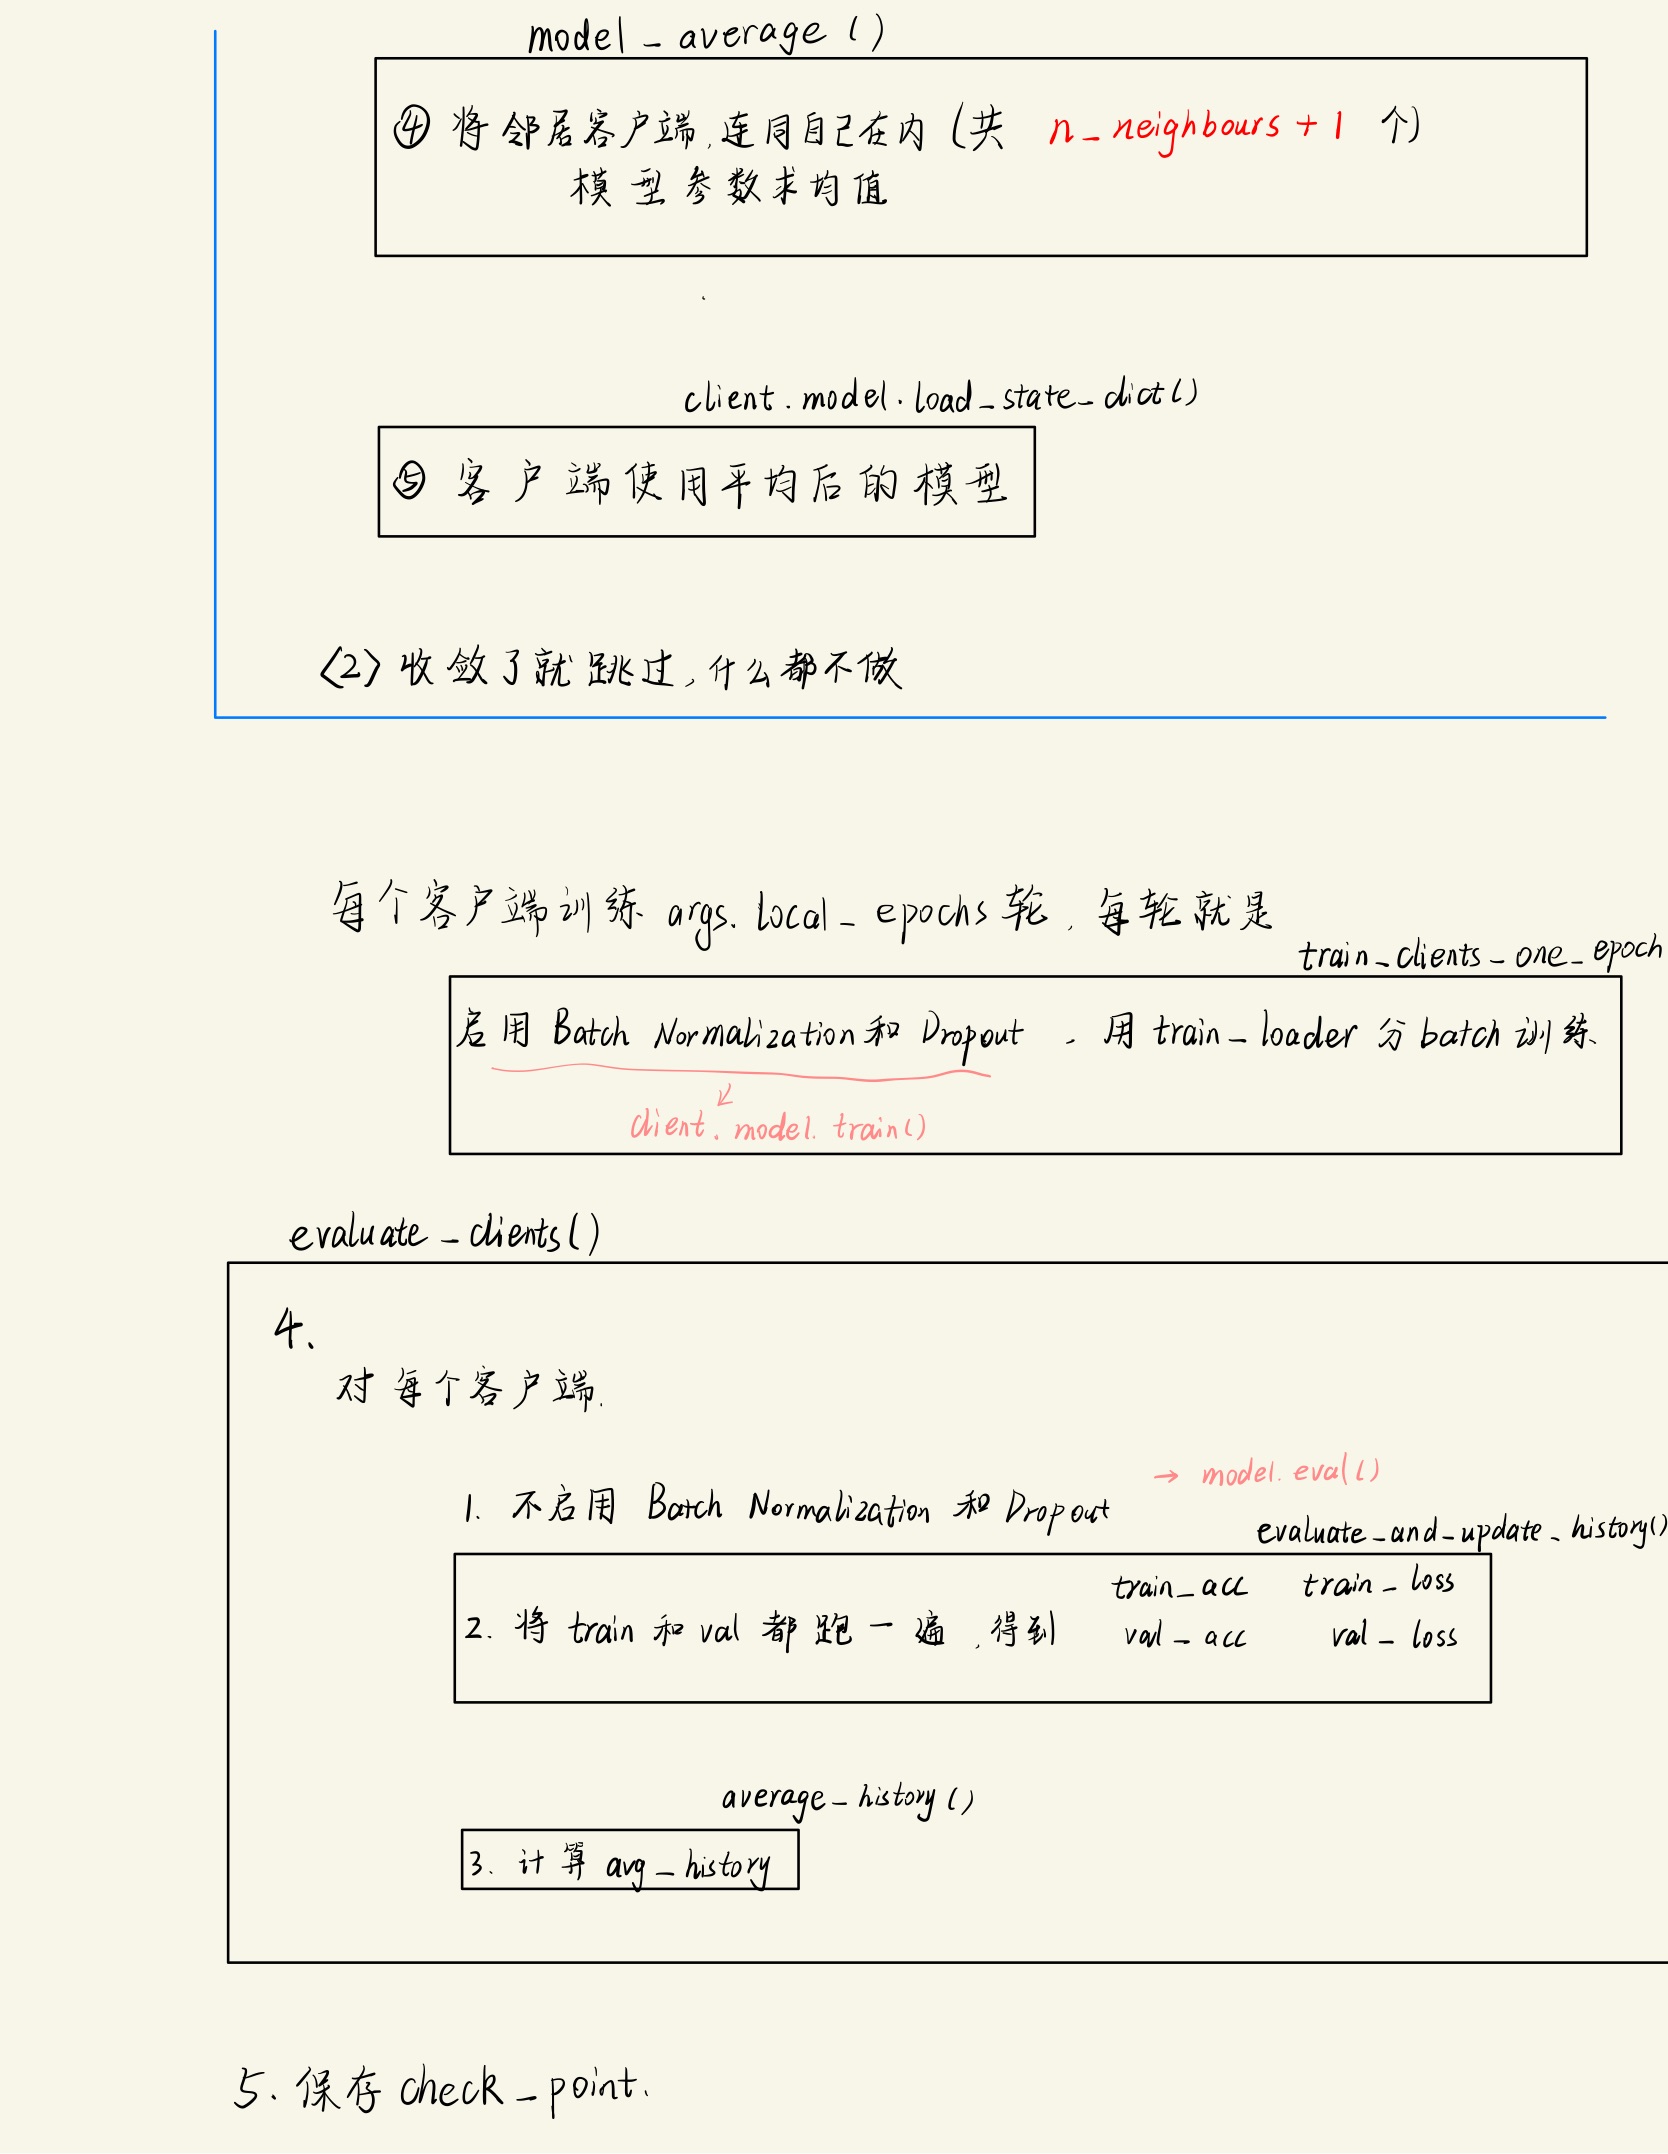 model_average()
④ 将邻居客户端,连同自己在内(共 n_neighbours+1 个)
模型参数求均值
client.model.load_state_dict()
⑤ 客户端使用平均后的模型
<2> 收敛了就跳过,什么都不做
每个客户端训练 args.local_epochs 轮,每轮就是
train_clients_one_epoch
启用 Batch Normalization 和 Dropout ,用 train_loader 分 batch 训练
↙
client.model.train()
evaluate_clients()
4、
对每个客户端.
→ model.eval()
1. 不启用 Batch Normalization 和 Dropout
evaluate_and_update_history()
train_acc train_loss
2. 将 train 和 val 都跑一遍,得到
val_acc val_loss
average_history()
3. 计算 avg_history
5. 保存 check_point.